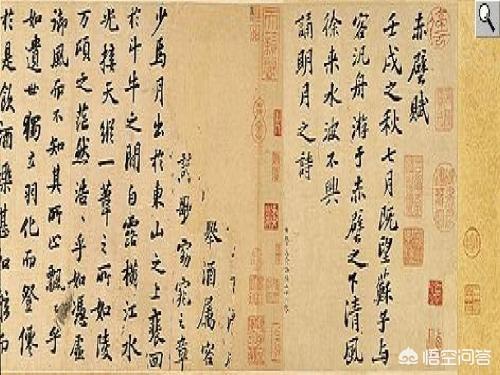 赤壁賦
壬戌之秋七月既望蘇子與
客汎舟游于赤壁之下清風
徐來水波不興
誦明月之詩
舉酒属客
窈窕之章
少焉月出於東山之上裵回
於斗牛之間白露橫江水
光接天縱一葦之所如陵
萬頃之茫然浩〻乎如憑虛
御風而不知其所止飄〻乎
如遺世獨立羽化而登僊
於是飲酒樂甚扣舷而
悟空问答